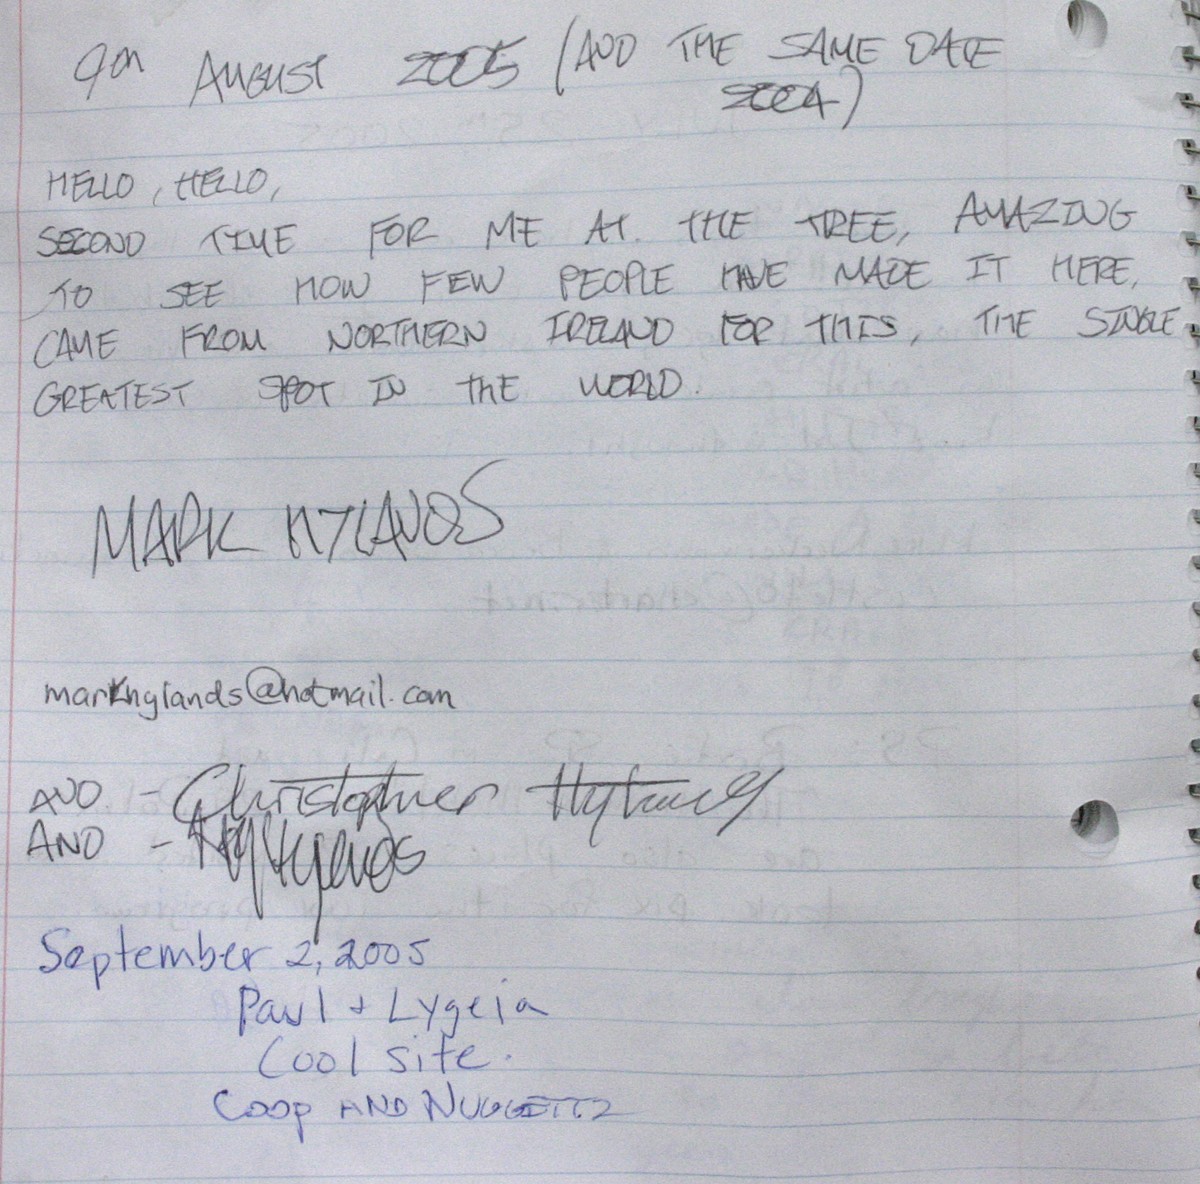 9th AUGUST 2005 (AND THE SAME DATE
2004)
HELLO, HELLO,
SECOND TIME FOR ME AT THE TREE, AMAZING
TO SEE HOW FEW PEOPLE HAVE MADE IT HERE,
CAME FROM NORTHERN IRELAND FOR THIS, THE SINGLE
GREATEST SPOT IN THE WORLD.
MARK HYLANDS
markhylands@hotmail.com
AND - Christopher
AND -
September 2, 2005
Paul + Lygeia
Cool site.
Coop AND NUGGETTZ